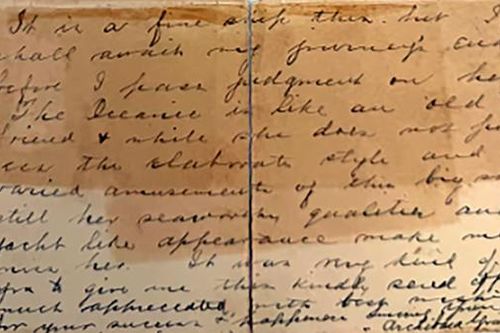 It is a fine ship this but I
shall await my journey's end
before I pass judgment on he
The Oceanic is like an old
friend & while she does not po
sess the elaborate style and
varied amusements of this big s
still her seaworthy qualities an
yacht like appearance make m
her. It was very kind of
to give me this kindly send of
much appreciated with best
for your success & happiness
Archibald